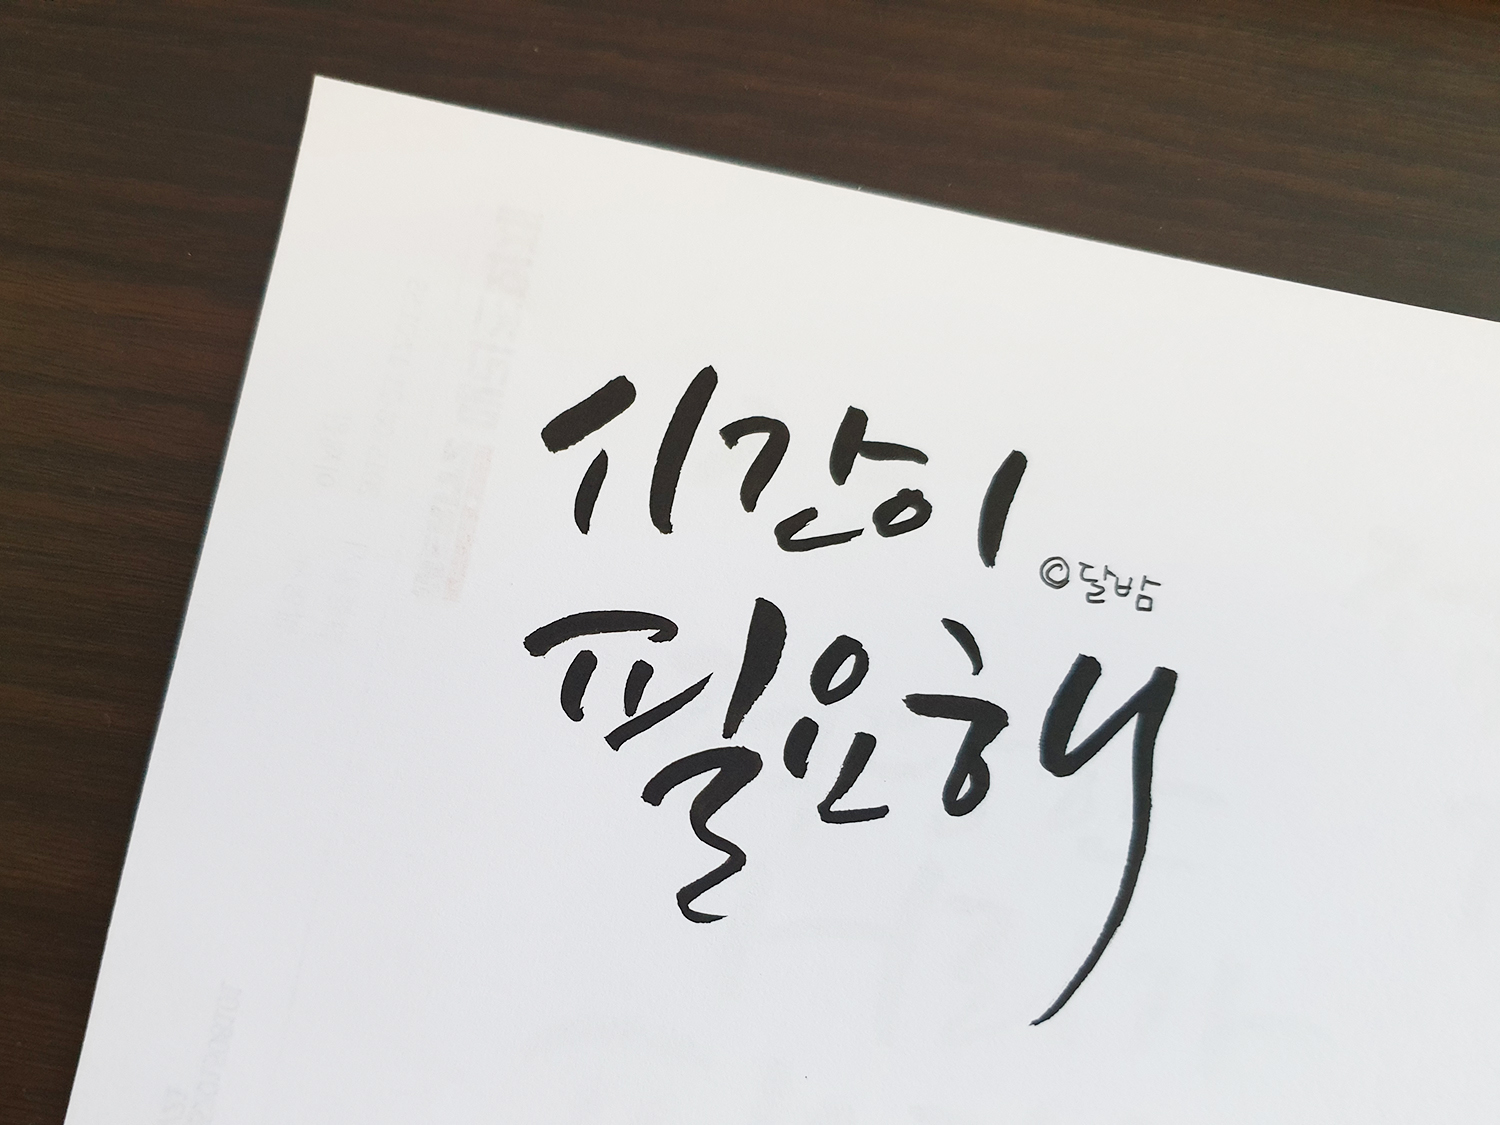 시간이
©달밤
필요해